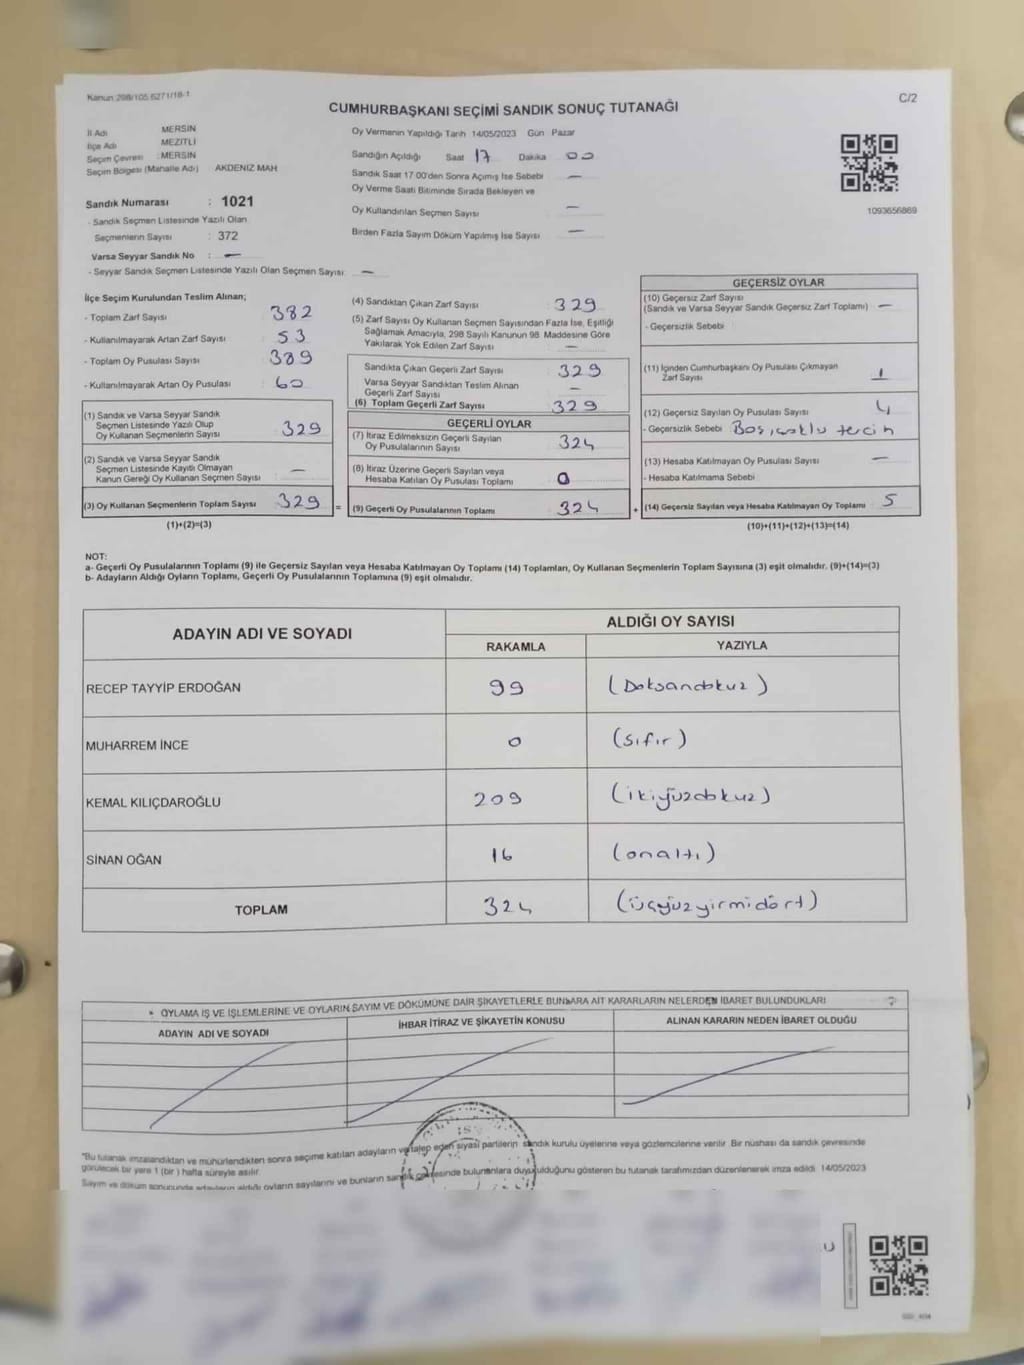 Kanun 298/105 6271/18-1
C/2
CUMHURBAŞKANI SEÇİMİ SANDIK SONUÇ TUTANAĞI
İl Adı MERSİN
İlçe Adı MEZİTLİ
Seçim Çevresi : MERSİN
Seçim Bölgesi (Mahalle Adı) AKDENİZ MAH
Sandık Numarası : 1021
- Sandık Seçmen Listesinde Yazılı Olan
Seçmenlerin Sayısı : 372
Varsa Seyyar Sandık No : —
- Seyyar Sandık Seçmen Listesinde Yazılı Olan Seçmen Sayısı: —
Oy Vermenin Yapıldığı Tarih 14/05/2023 Gün Pazar
Sandığın Açıldığı Saat 17 Dakika 00
Sandık Saat 17:00'den Sonra Açımış İse Sebebi —
Oy Verme Saati Bitiminde Sırada Bekleyen ve
Oy Kullandırılan Seçmen Sayısı —
Birden Fazla Sayım Döküm Yapılmış İse Sayısı —
1093656869
İlçe Seçim Kurulundan Teslim Alınan;
- Toplam Zarf Sayısı : 382
- Kullanılmayarak Artan Zarf Sayısı : 53
- Toplam Oy Pusulası Sayısı : 389
- Kullanılmayarak Artan Oy Pusulası : 60
(1) Sandık ve Varsa Seyyar Sandık
Seçmen Listesinde Yazılı Olup
Oy Kullanan Seçmenlerin Sayısı : 329
(2) Sandık ve Varsa Seyyar Sandık
Seçmen Listesinde Kayıtlı Olmayan
Kanun Gereği Oy Kullanan Seçmen Sayısı : —
(3) Oy Kullanan Seçmenlerin Toplam Sayısı : 329 =
(1)+(2)=(3)
(4) Sandıktan Çıkan Zarf Sayısı : 329
(5) Zarf Sayısı Oy Kullanan Seçmen Sayısından Fazla İse, Eşitliği
Sağlamak Amacıyla, 298 Sayılı Kanunun 98. Maddesine Göre
Yakılarak Yok Edilen Zarf Sayısı : —
Sandıkta Çıkan Geçerli Zarf Sayısı : 329
Varsa Seyyar Sandıktan Teslim Alınan
Geçerli Zarf Sayısı : —
(6) Toplam Geçerli Zarf Sayısı : 329
GEÇERLİ OYLAR
(7) İtiraz Edilmeksizin Geçerli Sayılan
Oy Pusulalarının Sayısı : 324
(8) İtiraz Üzerine Geçerli Sayılan veya
Hesaba Katılan Oy Pusulası Toplamı : 0
(9) Geçerli Oy Pusulalarının Toplamı : 324 +
GEÇERSİZ OYLAR
(10) Geçersiz Zarf Sayısı :
(Sandık ve Varsa Seyyar Sandık Geçersiz Zarf Toplamı) —
- Geçersizlik Sebebi :
(11) İçinden Cumhurbaşkanı Oy Pusulası Çıkmayan
Zarf Sayısı : 1
(12) Geçersiz Sayılan Oy Pusulası Sayısı : 4
- Geçersizlik Sebebi : Boş, çoklu tercih
(13) Hesaba Katılmayan Oy Pusulası Sayısı : —
- Hesaba Katılmama Sebebi :
(14) Geçersiz Sayılan veya Hesaba Katılmayan Oy Toplamı : 5
(10)+(11)+(12)+(13)=(14)
NOT:
a- Geçerli Oy Pusulalarının Toplamı (9) ile Geçersiz Sayılan veya Hesaba Katılmayan Oy Toplamı (14) Toplamları, Oy Kullanan Seçmenlerin Toplam Sayısına (3) eşit olmalıdır. (9)+(14)=(3)
b- Adayların Aldığı Oyların Toplamı, Geçerli Oy Pusulalarının Toplamına (9) eşit olmalıdır.
ADAYIN ADI VE SOYADI ALDIĞI OY SAYISI
RAKAMLA YAZIYLA
RECEP TAYYİP ERDOĞAN 99 (Doksandokuz)
MUHARREM İNCE 0 (sıfır)
KEMAL KILIÇDAROĞLU 209 (ikiyüzdokuz)
SİNAN OĞAN 16 (onaltı)
TOPLAM 324 (üçyüzyirmidört)
* OYLAMA İŞ VE İŞLEMLERİNE VE OYLARIN SAYIM VE DÖKÜMÜNE DAİR ŞİKAYETLERLE BUNLARA AİT KARARLARIN NELERDEN İBARET BULUNDUKLARI
ADAYIN ADI VE SOYADI İHBAR İTİRAZ VE ŞİKAYETİN KONUSU ALINAN KARARIN NEDEN İBARET OLDUĞU
*Bu tutanak imzalandıktan ve mühürlendikten sonra seçime katılan adayların ve talep eden siyasi partilerin sandık kurulu üyelerine veya gözlemcilerine verilir. Bir nüshası da sandık çevresinde
görülecek bir yere 1 (bir) hafta süreyle asılır.
Sayım ve döküm sonucunda adayların aldığı oyların sayılarını ve bunların sandık çevresinde bulunanlara duyurulduğunu gösteren bu tutanak tarafımızdan düzenlenerek imza edildi. 14/05/2023